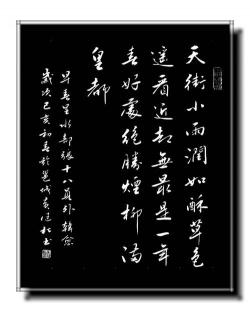 天街小雨潤如酥草色
遙看近却無最是一年
春好處絕勝煙柳滿
皇都
早春呈水部張十八員外 韓愈
歲次己亥初春於邕城黃松书